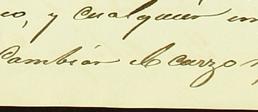 o, y cualquier
Cambiar el cargo